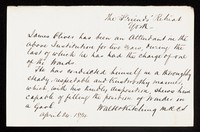 The Friends' Retreat
York.
James Oliver has been an Attendant in the
above Institution for two years, during the
last of which he has had the charge of one
of the Wards.
He has conducted himself in a thoroughly
steady, respectable and trustworthy manner,
which with his kindly disposition, shews him
capable of filling the position of Warder in
a Gaol.
April 14